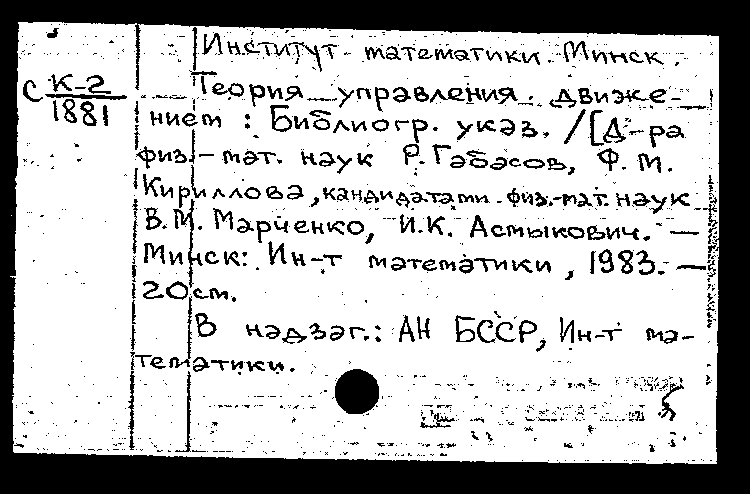 Институт математики. Минск.
С К-2
1881
Теория управления движе-
нием : Библиогр. указ. / [Д-ра
физ.-мат. наук Р. Габасов, Ф. М.
Кириллова, кандидатами физ.-мат. наук
В. М. Марченко, И.К. Асмыкович. —
Минск: Ин-т математики, 1983. —
20 см.
В надзаг.: АН БССР, Ин-т ма-
тематики.